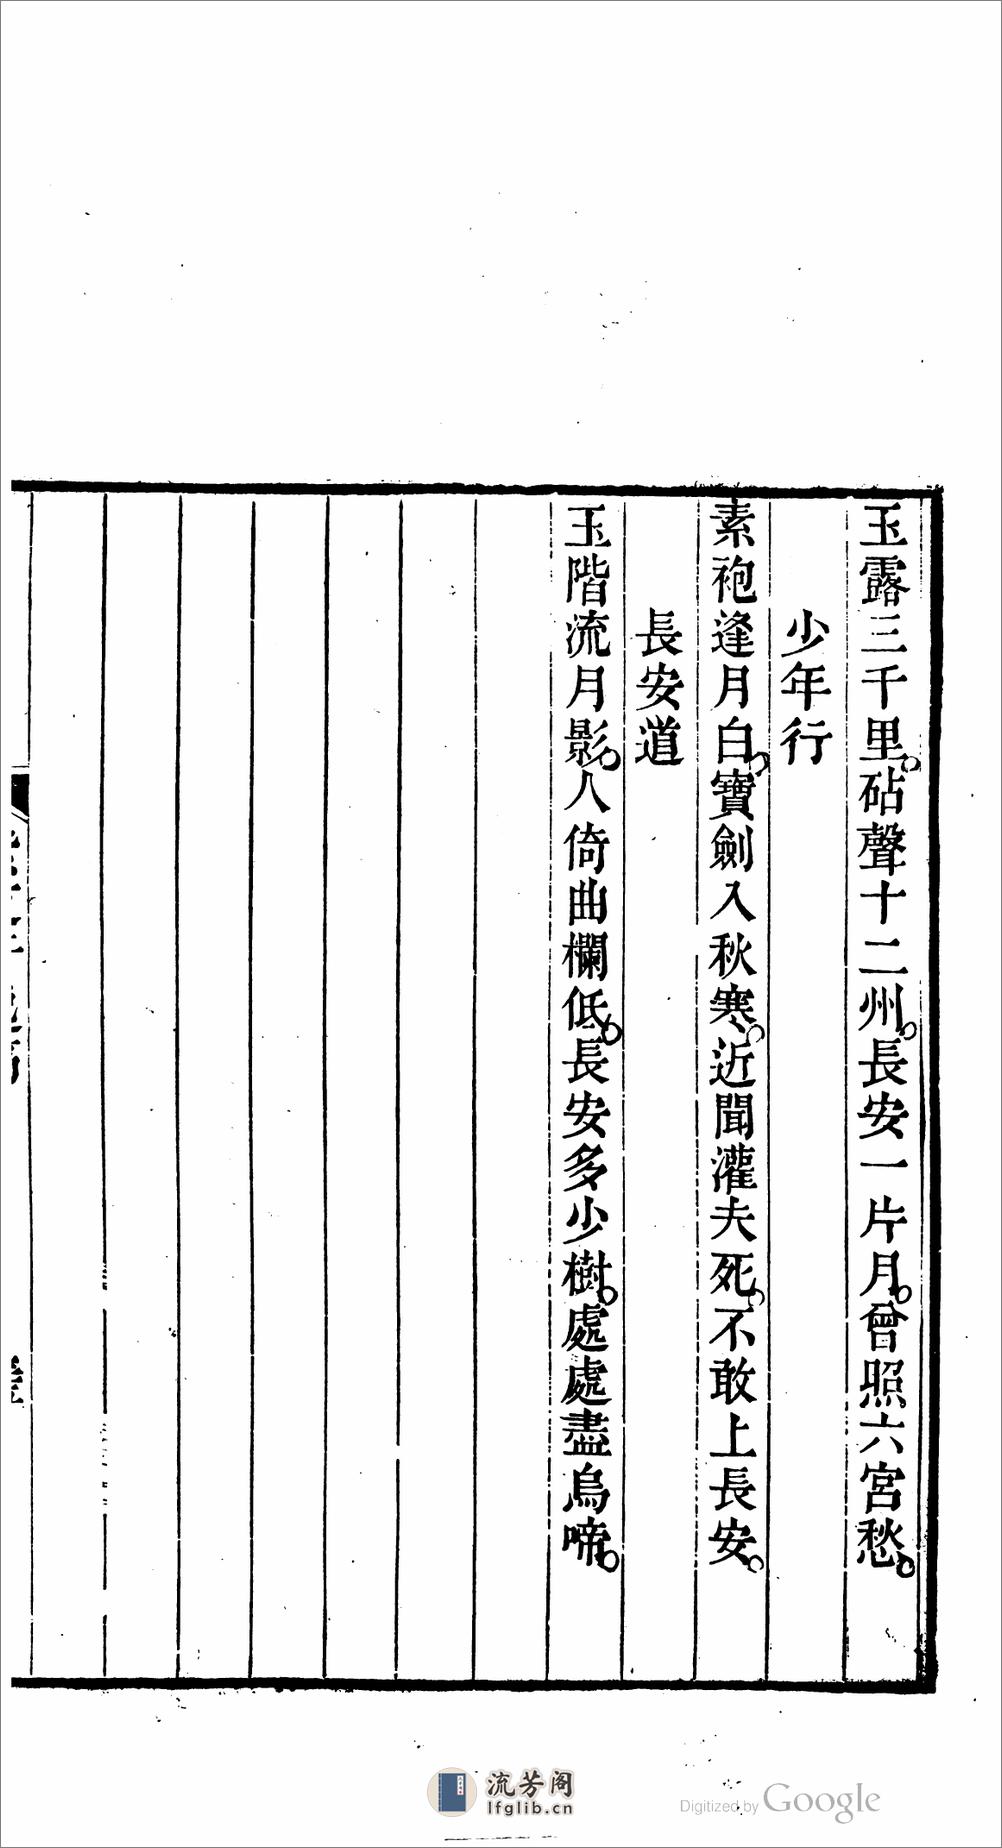 玉露三千里。砧聲十二州。長安一片月。曾照六宮愁。
少年行
素袍逢月白。寶劍入秋寒。近聞灌夫死。不敢上長安。
長安道
玉階流月影。人倚曲欄低。長安多少樹。處處盡烏啼。
流芳阁
lfglib.cn
Digitized by Google